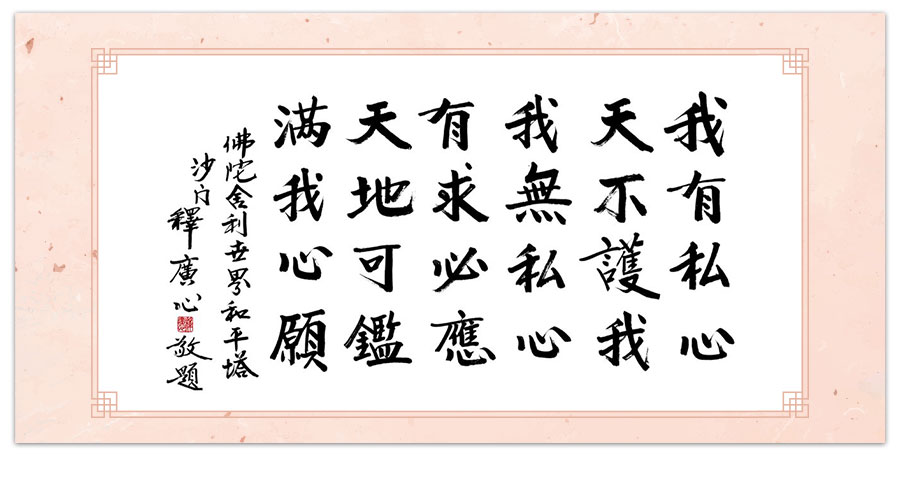 我有私心
天不護我
我無私心
有求必應
天地可鑑
满我心願
佛陀舍利世界和平塔
沙门釋廣心敬題